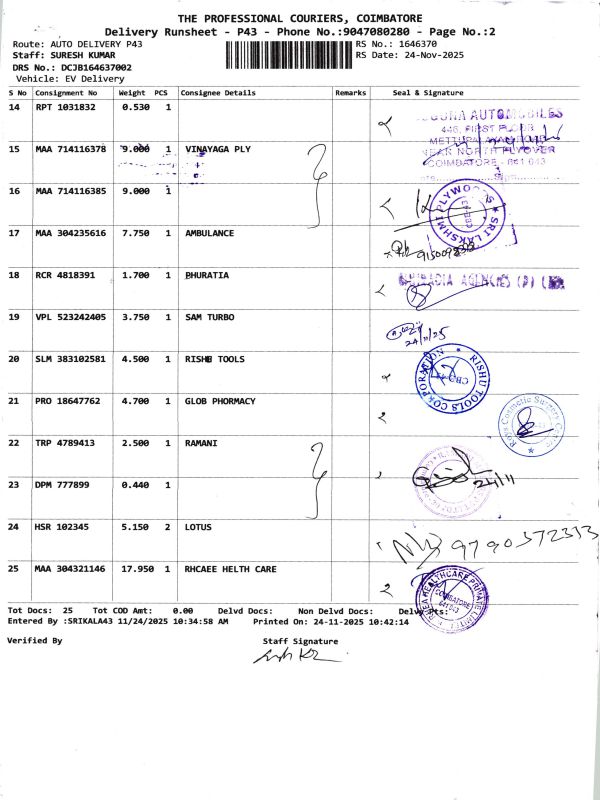 THE PROFESSIONAL COURIERS, COIMBATORE
Delivery Runsheet - P43 - Phone No.:9047080280 - Page No.:2
Route: AUTO DELIVERY P43 RS No.: 1646370
Staff: SURESH KUMAR RS Date: 24-Nov-2025
DRS No.: DCJB164637002
Vehicle: EV Delivery
S No Consignment No Weight PCS Consignee Details Remarks Seal & Signature
14 RPT 1031832 0.530 1
AUTOMOBILES
446, FIRST FLOOR
15 MAA 714116378 9.000 1 VINAYAGA PLY
NEAR NORTH FLYOVER
COIMBATORE - 641 043
16 MAA 714116385 9.000 1
SRI LAKSHMI PLYWOODS
CBE-43
17 MAA 304235616 7.750 1 AMBULANCE
18 RCR 4818391 1.700 1 BHURATIA
AGENCIES (P)
19 VPL 523242405 3.750 1 SAM TURBO
24/11/25
20 SLM 383102581 4.500 1 RISHB TOOLS
RISHU TOOLS CORPORATION
21 PRO 18647762 4.700 1 GLOB PHORMACY
Cosmetic Surgery
22 TRP 4789413 2.500 1 RAMANI
24/11
23 DPM 777899 0.440 1
24 HSR 102345 5.150 2 LOTUS
25 MAA 304321146 17.950 1 RHCAEE HELTH CARE
HEALTHCARE PRIVATE LIMITED
COIMBATORE
641 043
Tot Docs: 25 Tot COD Amt: 0.00 Delvd Docs: Non Delvd Docs: Delvd Wts:
Entered By :SRIKALA43 11/24/2025 10:34:58 AM Printed On: 24-11-2025 10:42:14
Verified By Staff Signature